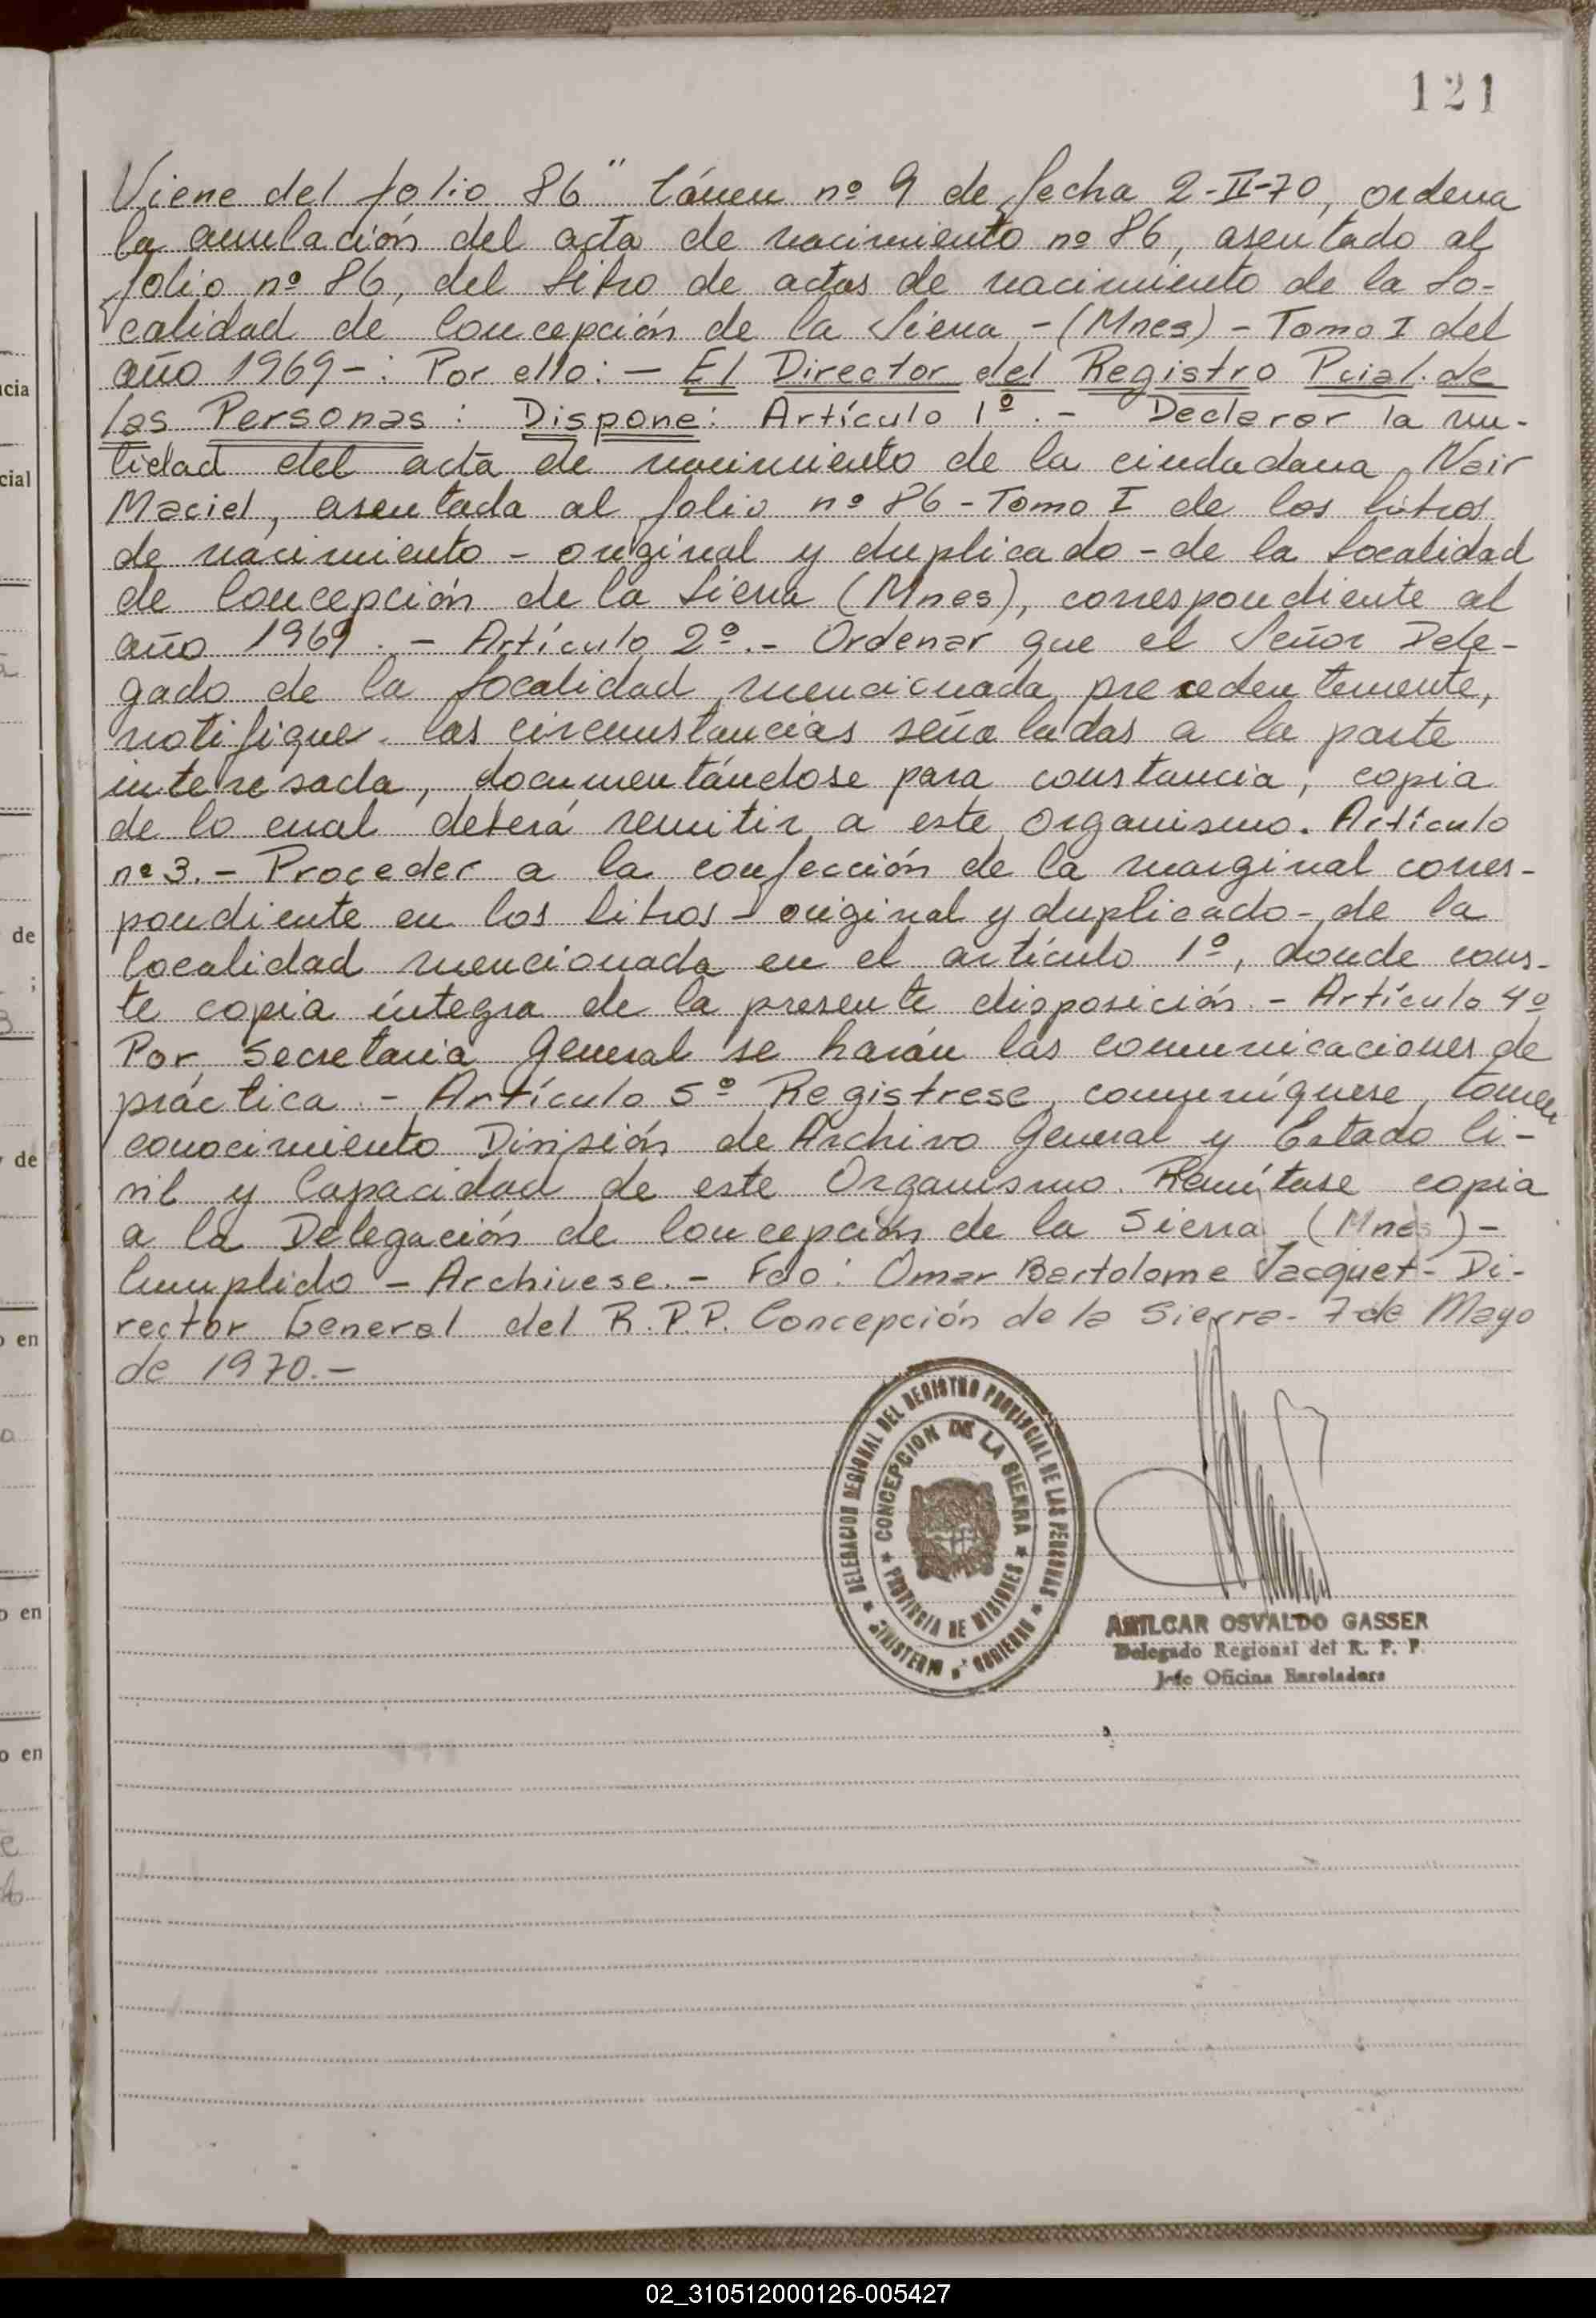 121
Viene del folio 86" támen nº 9 de fecha 2-II-70, ordena
la anulación del acta de nacimiento nº 86, asentado al
folio nº 86, del Libro de actas de nacimiento de la Lo-
calidad de Concepción de la Sierra - (Mnes) - Tomo I del
año 1969-: Por ello: - El Director del Registro Pcial. de
las Personas: Dispone: Artículo 1º.- Declarar la nu-
lidad del acta de nacimiento de la ciudadana Nair
Maciel, asentada al folio nº 86 - Tomo I de los libros
de nacimiento - original y duplicado - de la Localidad
de Concepción de la Sierra (Mnes), correspondiente al
año 1969.- Artículo 2º.- Ordenar que el Señor Dele-
gado de la localidad mencionada precedentemente,
notifique las circunstancias señaladas a la parte
interesada, documentándose para constancia, copia
de lo cual deberá remitir a este Organismo. Artículo
nº 3.- Proceder a la confección de la marginal corres-
pondiente en los libros - original y duplicado - de la
localidad mencionada en el artículo 1º, donde cons-
te copia íntegra de la presente disposición.- Artículo 4º
Por Secretaria General se harán las comunicaciones de
práctica.- Artículo 5º Registrese, comuníquese, tomen
conocimiento División de Archivo General y Estado Ci-
vil y Capacidad de este Organismo. Remítase copia
a la Delegación de Concepción de la Sierra (Mnes)-
Cumplido - Archivese.- Fdo: Omar Bartolome Jacquet - Di-
rector General del R.P.P. Concepción de la Sierra - 7 de Mayo
de 1970.-
DELEGACION REGIONAL DEL REGISTRO PROVINCIAL DE LAS PERSONAS
CONCEPCION DE LA SIERRA
PROVINCIA DE MISIONES
MINISTERIO DE GOBIERNO
AMILCAR OSVALDO GASSER
Delegado Regional del R. P. P.
Jefe Oficina Enroladora
cia
cial
de
;
de
o en
o en
o en
02_310512000126-005427